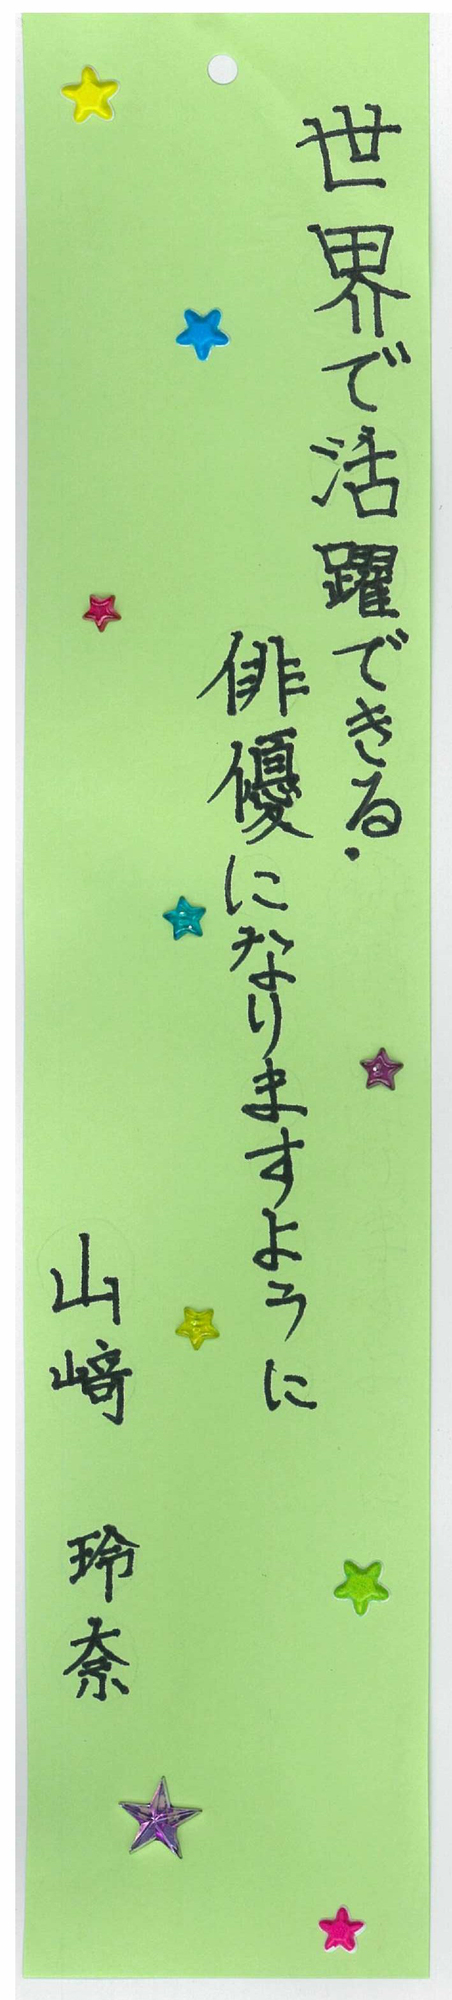 世界で活躍できる.
俳優になりますように
山﨑 玲奈